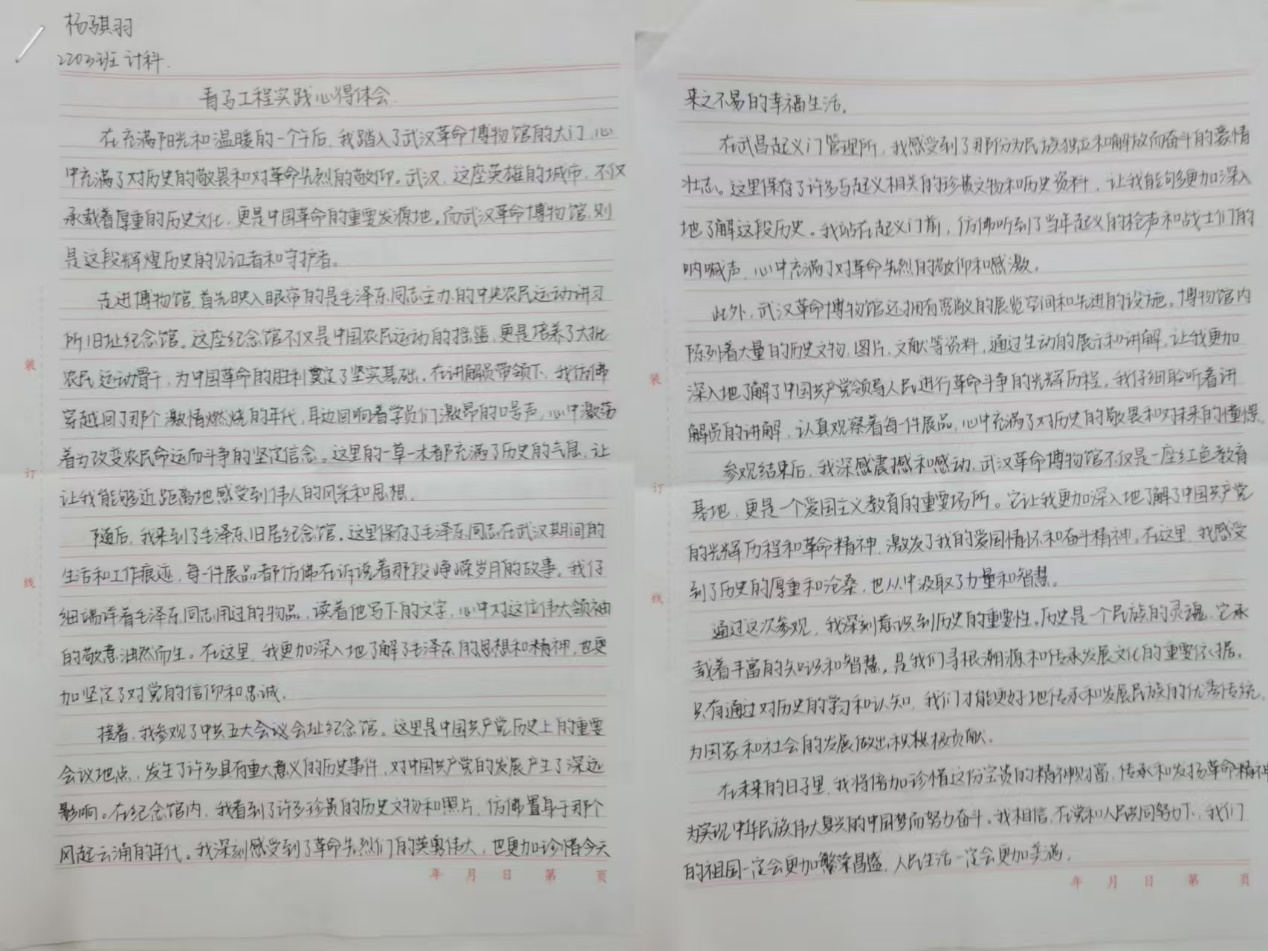 杨骐羽
2203班 计科
青马工程实践心得体会
在充满阳光和温暖的一个午后，我踏入了武汉革命博物馆的大门，心
中充满了对历史的敬畏和对革命先烈的敬仰。武汉，这座英雄的城市，不仅
承载着厚重的历史文化，更是中国革命的重要发源地。而武汉革命博物馆，则
是这段辉煌历史的见证者和守护者。
走进博物馆，首先映入眼帘的是毛泽东同志主办的中央农民运动讲习
所旧址纪念馆。这座纪念馆不仅是中国农民运动的摇篮，更是培养了大批
农民运动骨干，为中国革命的胜利奠定了坚实基础。在讲解员带领下，我仿佛
穿越回了那个激情燃烧的年代，耳边回响着学员们激昂的口号声，心中激荡
着为改变农民命运而斗争的坚定信念。这里的一草一木都充满了历史的气息，让
让我能够近距离地感受到伟人的风采和思想。
随后，我来到了毛泽东旧居纪念馆。这里保存了毛泽东同志在武汉期间的
生活和工作痕迹，每一件展品都仿佛在诉说着那段峥嵘岁月的故事。我仔
细端详着毛泽东同志用过的物品，读着他写下的文字，心中对这位伟大领袖
的敬意油然而生。在这里，我更加深入地了解了毛泽东的思想和精神，也更
加坚定了对党的信仰和忠诚。
接着，我参观了中共五大会议会址纪念馆。这里是中国共产党历史上的重要
会议地点，发生了许多具有重大意义的历史事件，对中国共产党的发展产生了深远
影响。在纪念馆内，我看到了许多珍贵的历史文物和照片，仿佛置身于那个
风起云涌的年代。我深刻感受到了革命先烈们的英勇伟大，也更加珍惜今天
装
订
线
年 月 日 第 页
来之不易的幸福生活。
在武昌起义门管理所，我感受到了那份为民族独立和解放而奋斗的豪情
壮志。这里保存了许多与起义相关的珍贵文物和历史资料，让我能够更加深入
地了解这段历史。我站在起义门前，仿佛听到了当年起义的枪声和战士们的
呐喊声，心中充满了对革命先烈的敬仰和感激。
此外，武汉革命博物馆还拥有宽敞的展览空间和先进的设施。博物馆内
陈列着大量的历史文物，图片，文献等资料，通过生动的展示和讲解，让我更加
深入地了解了中国共产党领导人民进行革命斗争的光辉历程。我仔细聆听着讲
解员的讲解，认真观察着每一件展品，心中充满了对历史的敬畏和对未来的憧憬。
参观结束后，我深感震撼和感动，武汉革命博物馆不仅是一座红色教育
基地，更是一个爱国主义教育的重要场所。它让我更加深入地了解了中国共产党
的光辉历程和革命精神，激发了我的爱国情怀和奋斗精神。在这里，我感受
到了历史的厚重和沧桑，也从中汲取了力量和智慧。
通过这次参观，我深刻意识到历史的重要性。历史是一个民族的灵魂，它承
载着丰富的知识和智慧，是我们寻根溯源和传承发展文化的重要依据。
只有通过对历史的学习和认知，我们才能更好地传承和发展民族的优秀传统，
为国家和社会的发展做出积极贡献。
在未来的日子里，我将倍加珍惜这份宝贵的精神财富，传承和发扬革命精神，
为实现中华民族伟大复兴的中国梦而努力奋斗。我相信，在党和人民共同努力下，我们
的祖国一定会更加繁荣昌盛，人民生活一定会更加美满。
装
订
线
年 月 日 第 页